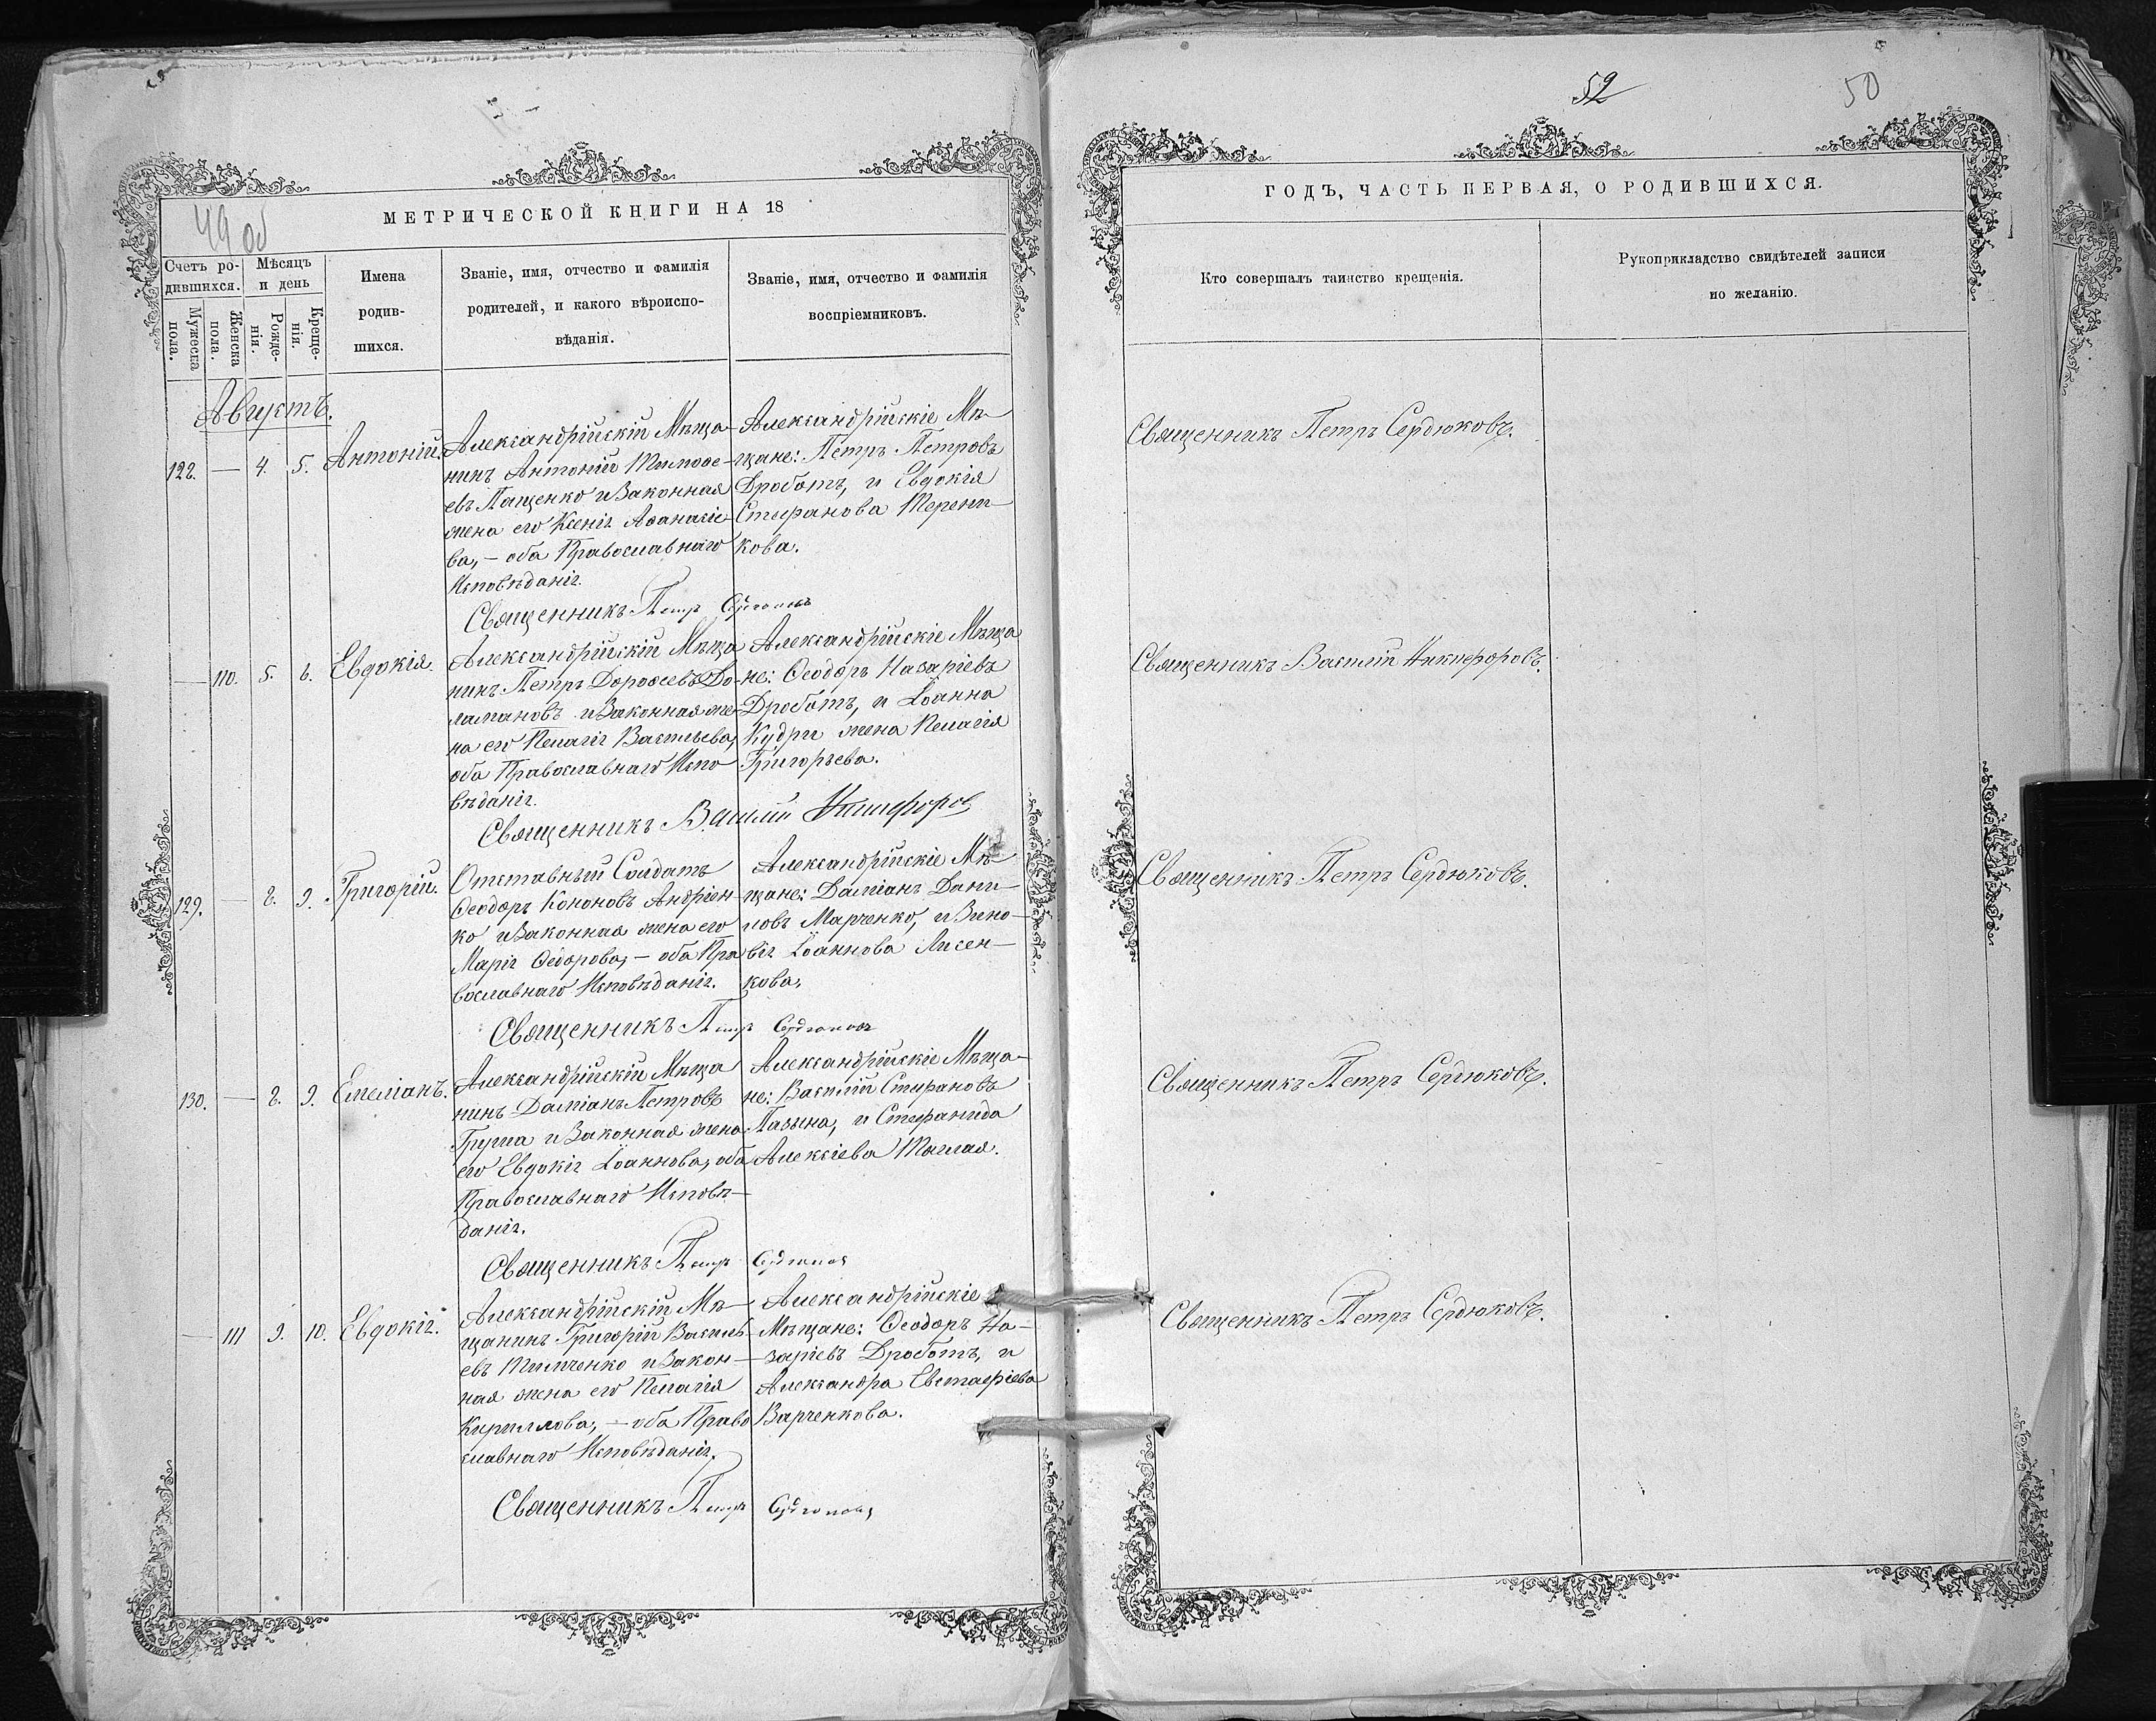 49 об
МЕТРИЧЕСКОЙ КНИГИ НА 18
Счетъ ро-
дившихся.
Мѣсяцъ
и день
Мужеска
пола.
Женска
пола.
Рожде-
нія.
Креще-
нія.
Имена
родив-
шихся.
Званіе, имя, отчество и фамилія
родителей, и какого вѣроиспо-
вѣданія.
Званіе, имя, отчество и фамилія
воспріемниковъ.
Августъ.
128. — 4. 5. Антоній.
Александрійскій Мѣща-
нинъ Антоній Тимофе-
евъ Пащенко и Законная
жена его Ксенія Аѳанасіе-
ва, — оба Православнаго
Исповѣданія.
Александрійскіе Мѣ-
щане: Петръ Петровъ
Дроботъ, и Евдокія
Стефанова Терени-
кова.
Священникъ Петръ Сердюковъ
— 110. 5. 6. Евдокія.
Александрійскій Мѣща
нинъ Петръ Дороѳеевъ До-
ламановъ и Законная же-
на его Пелагія Васильева,
оба Православнаго Испо
вѣданія.
Александрійскіе Мѣща
не: Ѳеодоръ Назаріевъ
Дроботъ, и Іоанна
Кудри жена Пелагія
Григорьева.
Священникъ Василій Никифоровъ
129. — 8. 9. Григорій.
Отставный Солдатъ
Ѳеодоръ Кононовъ Андріен-
ко и Законная жена его
Марія Ѳеодорова, — оба Пра
вославнаго Исповѣданія.
Александрійскіе Мѣ-
щане: Даміанъ Дани-
ловъ Марченко, и Зино-
вія Іоаннова Лисен-
кова.
Священникъ Петръ Сердюковъ
130. — 8. 9. Емеліанъ.
Александрійскій Мѣща
нинъ Даміанъ Петровъ
Груша и Законная жена
его Евдокія Іоаннова, оба
Православнаго Исповѣ-
данія.
Александрійскіе Мѣща-
не: Василій Стефановъ
Пазына, и Стефанида
Алексіева Таглая.
Священникъ Петръ Сердюковъ
— 111 9. 10. Евдокія.
Александрійскій Мѣ-
щанинъ Григорій Василь-
евъ Тимченко и Закон-
ная жена его Пелагія
Кириллова, — оба Право
славнаго Исповѣданія.
Александрійскіе
Мѣщане: Ѳеодоръ На-
заріевъ Дроботъ, и
Александра Евстафіева
Варченкова.
Священникъ Петръ Сердюковъ
52
50
ГОДЪ, ЧАСТЬ ПЕРВАЯ, О РОДИВШИХСЯ.
Кто совершалъ таинство крещенія.
Рукоприкладство свидѣтелей записи
по желанію.
Священникъ Петръ Сердюковъ.
Священникъ Василій Никифоровъ.
Священникъ Петръ Сердюковъ.
Священникъ Петръ Сердюковъ.
Священникъ Петръ Сердюковъ.